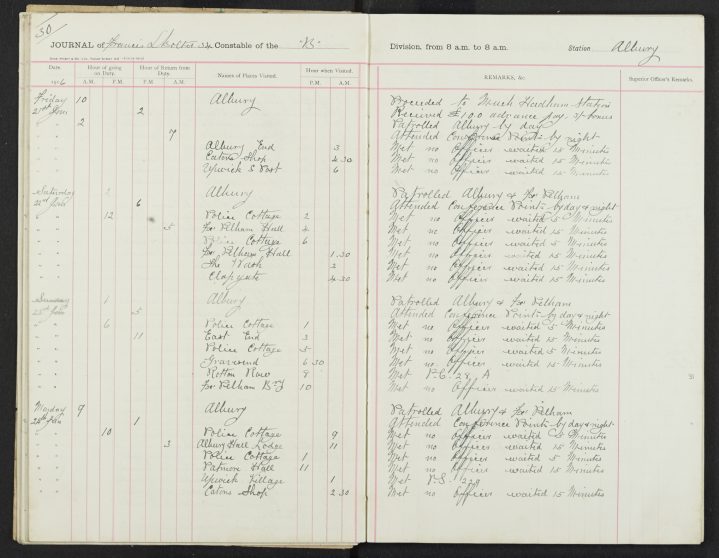 30
JOURNAL of Francis Constable of the "B" Division, from 8 a.m. to 8 a.m. Station Albury
Date. Hour of going on Duty. Hour of Return from Duty. Names of Places Visited. Hour when Visited. REMARKS, &c. Superior Officer's Remarks.
A.M. P.M. A.M. P.M. P.M. A.M.
Friday 10 Albury Proceeded to Much Hadham Station
21st 2 Received £1.00 advance pay,
2 Patrolled Albury by day
9 Attended Conference Points by night
Albury End 3 Met no Officer waited 15 Minutes
Eatons Shop 4.30 Met no Officer waited 15 Minutes
Upwick S Post 6 Met no Officer waited 15 Minutes
Saturday 2 Albury Patrolled Albury & Fx Pelham
22nd 6 Attended Conference Points by day & night
12 Police Cottage 2 Met no Officer waited 5 Minutes
5 Fx Pelham Hall 4 Met no Officer waited 15 Minutes
Police Cottage 6 Met no Officer waited 5 Minutes
Fx Pelham Hall 1.30 Met no Officer waited 15 Minutes
The Wash 3 Met no Officer waited 15 Minutes
Clapgate 4.30 Met no Officer waited 15 Minutes
Sunday 1 Albury Patrolled Albury & Fx Pelham
23rd 5 Attended Conference Points by day & night
6 Police Cottage 1 Met no Officer waited 5 Minutes
11 East End 3 Met no Officer waited 15 Minutes
Police Cottage 5 Met no Officer waited 5 Minutes
Gravesend 6.30 Met no Officer waited 15 Minutes
Rotton Row 8 Met P.C. 28 A
Fx Pelham 10 Met no Officer waited 15 Minutes
Monday 9 Albury Patrolled Albury & Fx Pelham
24th 1 Attended Conference Points by day & night
10 Police Cottage 9 Met no Officer waited 5 Minutes
3 Albury Hall Lodge 11 Met no Officer waited 15 Minutes
Police Cottage 1 Met no Officer waited 5 Minutes
Patmore Hall 11 Met no Officer waited 15 Minutes
Upwick Village 1 Met P.S.
Eatons Shop 2.30 Met no Officer waited 15 Minutes